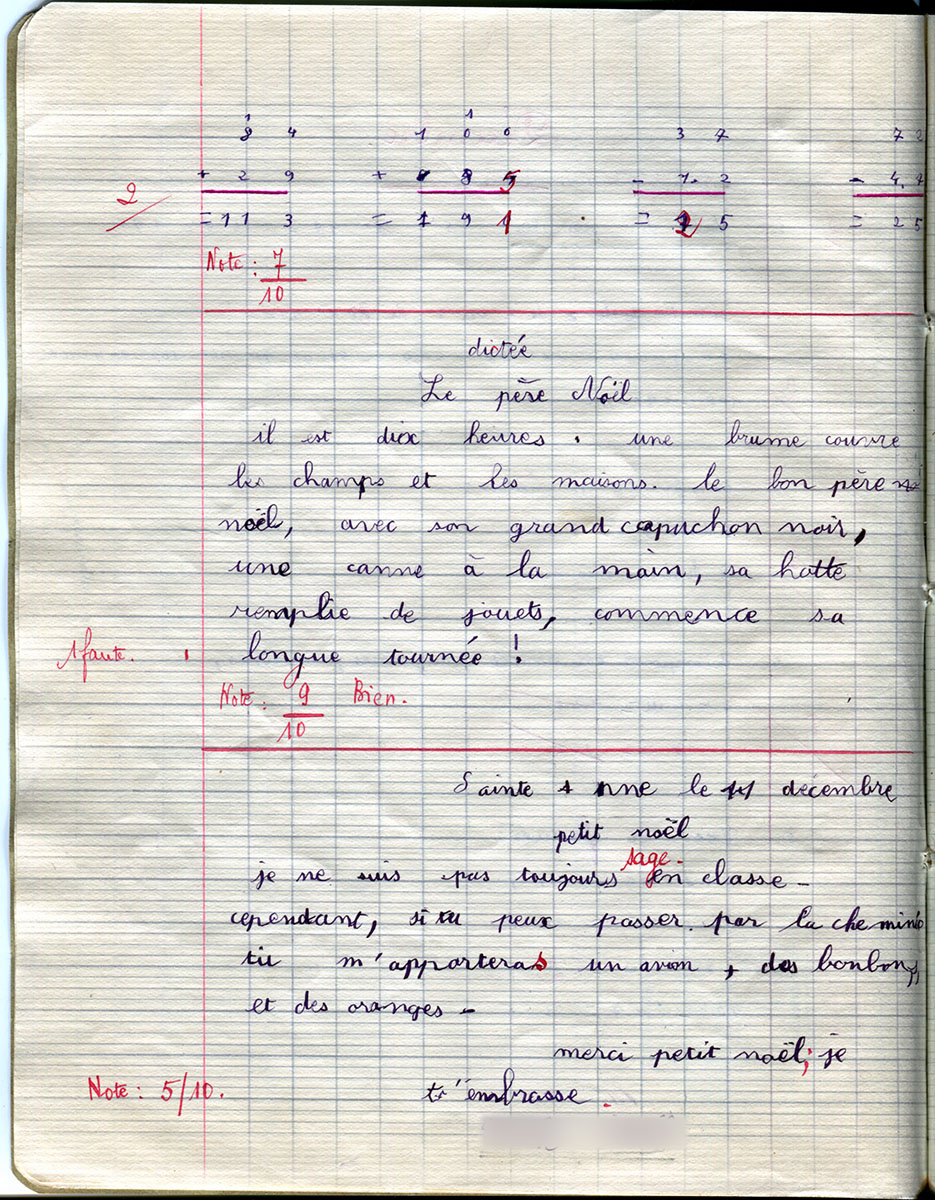 1 1
8 4 1 0 0 3 7 7 2
+ 2 9 + 5 - 1. 2 - 4. 7
2
= 1 1 3 = 1 9 1 = 2 5 = 2 5
Note : 7/10
dictée
Le père Noël
il est dix heures . une brume couvre
les champs et les maisons. le bon père
noël, avec son grand capuchon noir,
une canne à la main, sa hotte
remplie de jouets, commence sa
1 faute. longue tournée !
Note : 9/10 Bien.
Sainte Anne le décembre
petit noël
sage.
je ne suis pas toujours en classe -
cependant, si tu peux passer. par la cheminé
tu m'apporteras un avion, des bonbons,
et des oranges -
merci petit noël; je
Note : 5/10. t'embrasse .